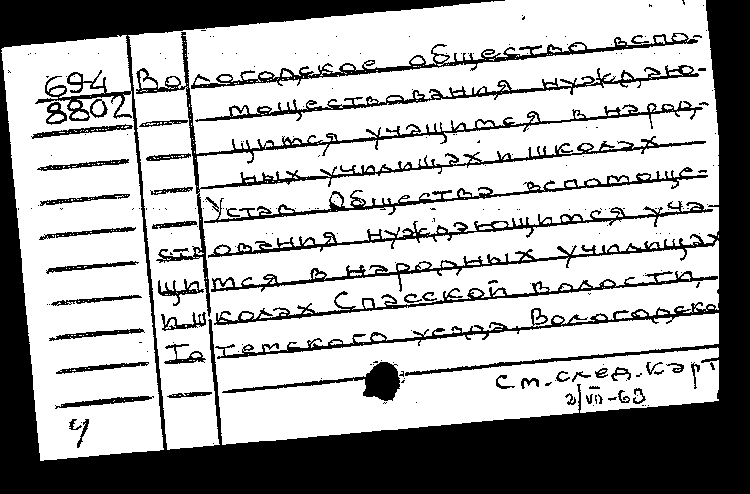 694
8802
Вологодское общество вспо-
моществования нуждаю-
щимся учащимся в народ-
ных училищах и школах
Устав Общества вспомоще-
ствования нуждающимся уча-
щимся в народных училищах
и школах Спасской волости,
Тотемского уезда, Вологодско
См. след. карт
2/VII-63
Ч